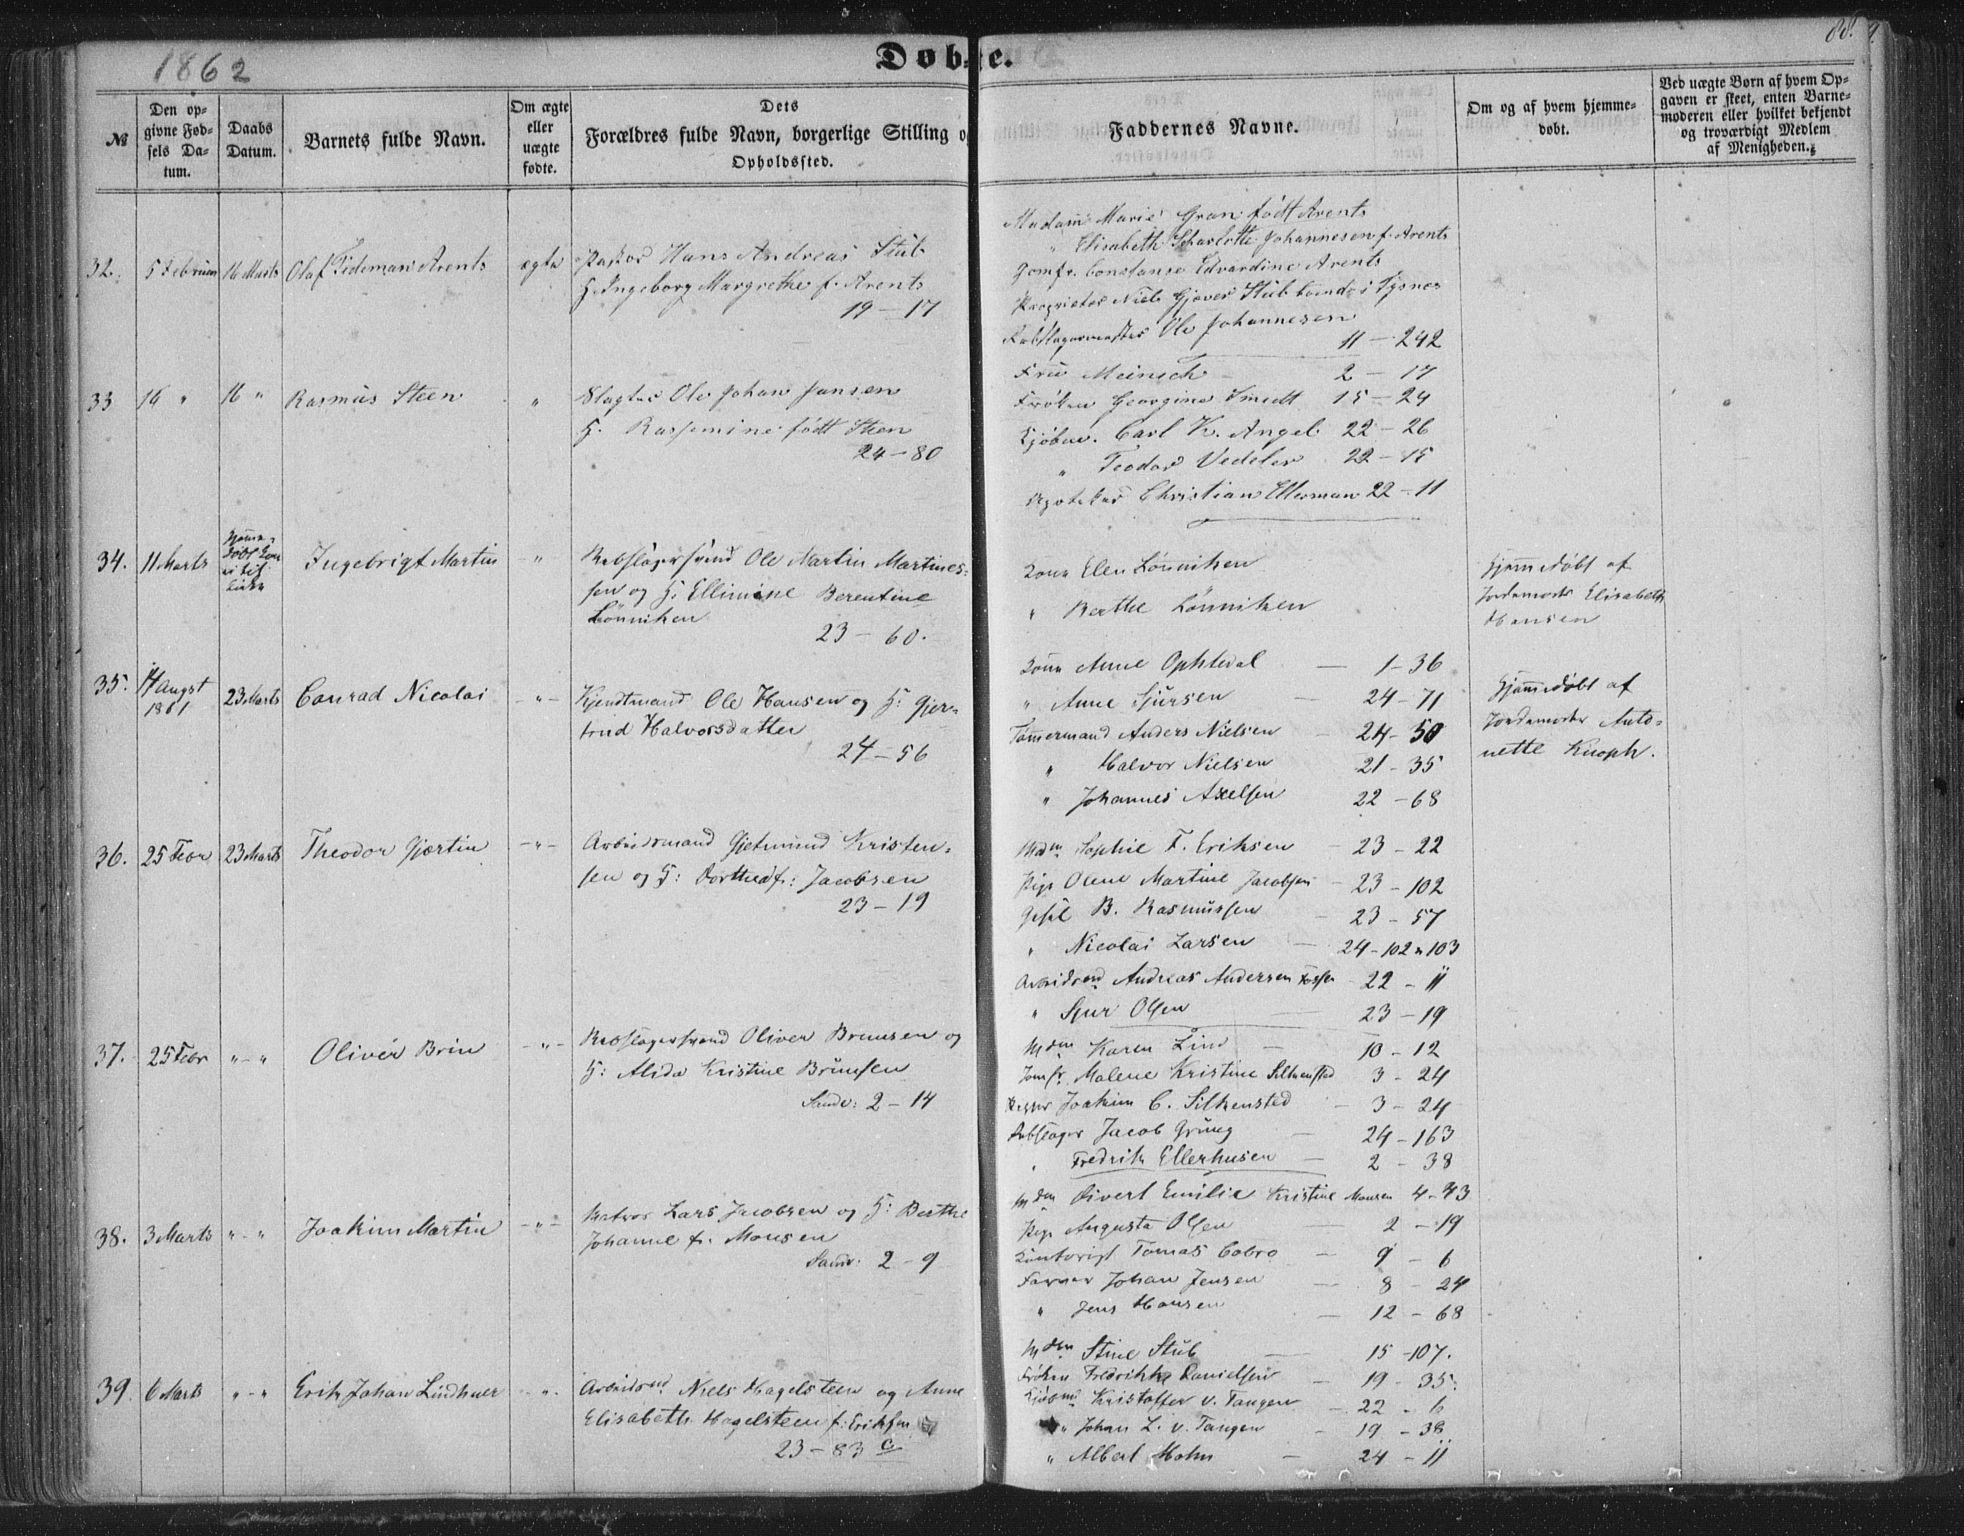 1862
Dobte.
88.
№
Den opgivne Fødsels Datum.
Daabs Datum.
Barnets fulde Navn.
Om ægte eller uægte fødte.
Dets
Forældres fulde Navn, borgerlige Stilling o
Opholdssted.
Faddernes Navne.
Om og af hvem hjemmedobt.
Ved uægte Børn af hvem Opgaven er skeet, enten Barnemoderen eller hvilket bekjendt og troværdigt Medlem af Menigheden.
32. 5 Februar 16 Marts Olaf Tideman Arents ægte Pastor Hans Andreas Stub
H. Ingeborg Margrethe f. Arents
19 – 17
Madam Marie Gran født Arents
" Elisabeth Scharlotte Johannesen f. Arents
Jomfr. Constanse Edvardine Arents
Proprietær Niels Gjever Stub boende i Tysnes
Rebslagermester Ole Johannesen
11 – 242
33 16 " 16 " Rasmus Steen " Slagter Ole Johan Jansen
H. Rassemine født Steen
24 – 80
Frue Meinich 2 – 17
Frøken Georgine Smedt 15 – 24
Kjøbm. Carl K. Angel 22 – 26
" Teodor Vedeler 22 – 15
Apoteker Christian Ellerman 22 – 11
34. 11 Marts Ingebrigt Martin " Rebslagersvend Ole Martin Martines-
sen og H. Ellimine Berentine
Lönniken
23 – 60.
Kona Elen Lönniken
" Berthe Lönniken
Hjemmedøbt af
Jordemoder Elisabeth
Hansen
35. 14 Augst
1861 23 Marts Conrad Nicolai – " – Kjendtmand Ole Hansen og H: Gjer-
trud Halvorsdatter
24 – 56
Kona Anne Ophtedal – 1 – 36
" Anne Sjursen – 24 – 71
Tømmermand Anders Nielsen – 24 – 50
" Halvor Nielsen – 21 – 35
" Johannes Axelsen 22 – 68
Hjemmedøbt af
Jordemoder Anto-
nette Knoph.
36. 25 Febr 23 Marts Theodor Gjertin – " – Arbeidsmand Gjetmund Kristen-
sen og H: Dorthea f: Jacobsen
23 – 19
Mdm Sophie F. Eriksen – 23 – 22
Pige Olene Martine Jacobsen – 23 – 102
Gesel B. Rasmussen – 23 – 57
" Nicolai Larsen – 24 – 102 " 103
Arbeidsmd Andreas Andersen 22 – 11
" Sjur Olsen 23 – 19
37. 25 Febr " – " Olivér Brün – " – Rebslagersvend Oliver Brunsen og
H: Alida Kristine Brünsen
Sandv: 2 – 14
Mdm Karen Lind – 10 – 12
Jomfr. Malene Kristine Silkensted 3 – 24
Joakim C. Silkensted – 3 – 24
Rebslager Jacob Grüng – 24 – 163
" Fredrik Ellerhusen – 2 – 38
38. 3 Marts " – " Joakim Martin – " – Matros Lars Jacobsen og H: Berthe
Johanne f. Monsen
Sandv: 2 – 9
Mdm Sivert Emilie Kristine Monsen 4 – 43
Pige Augusta Olsen – 2 – 19
Kontorist Tomas Cobro – 9 – 6
Farver Johan Jensen – 8 – 24
" Jens Hansen – 12 – 68
39. 6 Marts " – " Erik Johan Lindtner – " – Arbeidsmd Niels Hagelsteen og Anne
Elisabeth Hagelsteen f: Eriksen
23 – 83 c
Mdm Stine Stub – 15 – 107.
Frøken Fredrikke Danielsen – 19 – 35.
Kjøbmd Kristoffer v. Tangen – 22 – 6
" Johan L. v. Tangen – 19 – 38
" Albert Mohn – 24 – 11